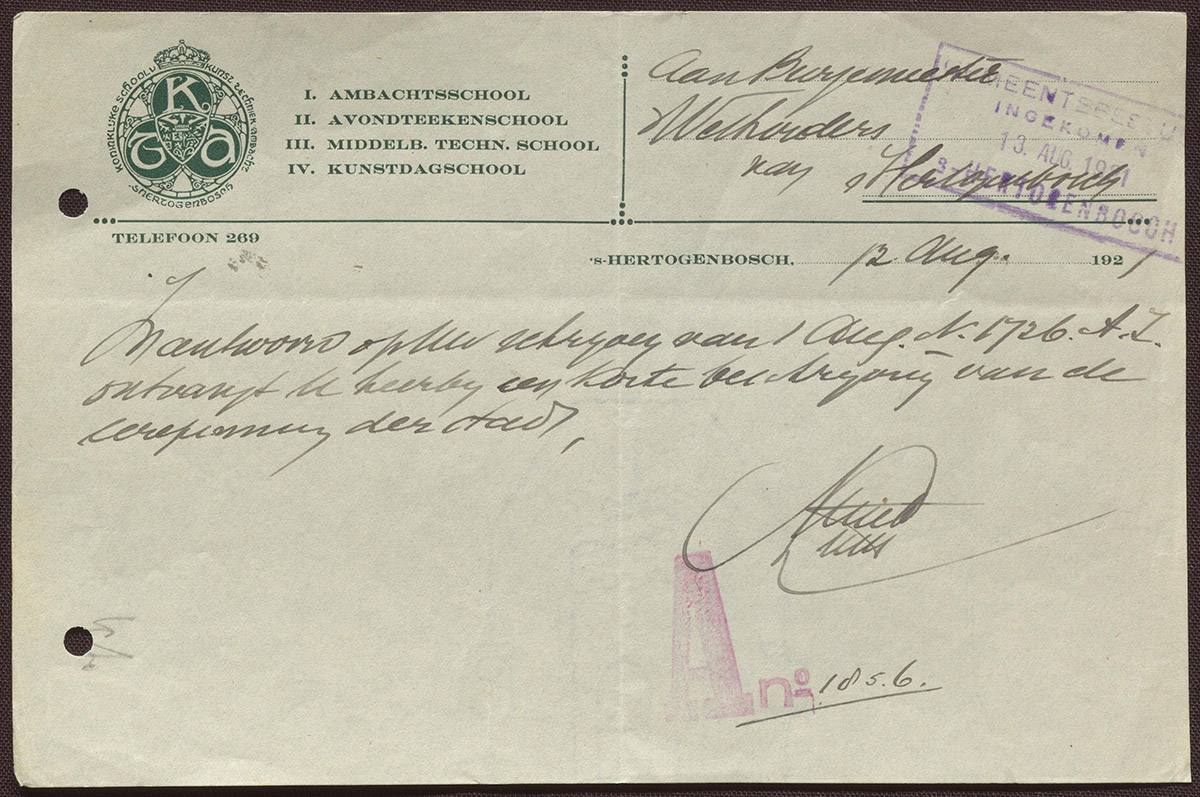 KONINKLIJKE SCHOOL V. KUNST TECHNIEK AMBACHT
'S-HERTOGENBOSCH
K T A
I. AMBACHTSSCHOOL
II. AVONDTEEKENSCHOOL
III. MIDDELB. TECHN. SCHOOL
IV. KUNSTDAGSCHOOL
TELEFOON 269
Aan Burgemeester
Wethouders
van 's Hertogenbosch
GEMEENTEBESTUUR
INGEKOMEN
13. AUG. 1921
'S-HERTOGENBOSCH
's-HERTOGENBOSCH, 12 Aug. 1921
In antwoord op Uw schrijven van 1 Aug. N. 1726. A.Z.
ontvangt U hierbij een korte beschrijving van de
eerepenning der stad,
A no. 1856.